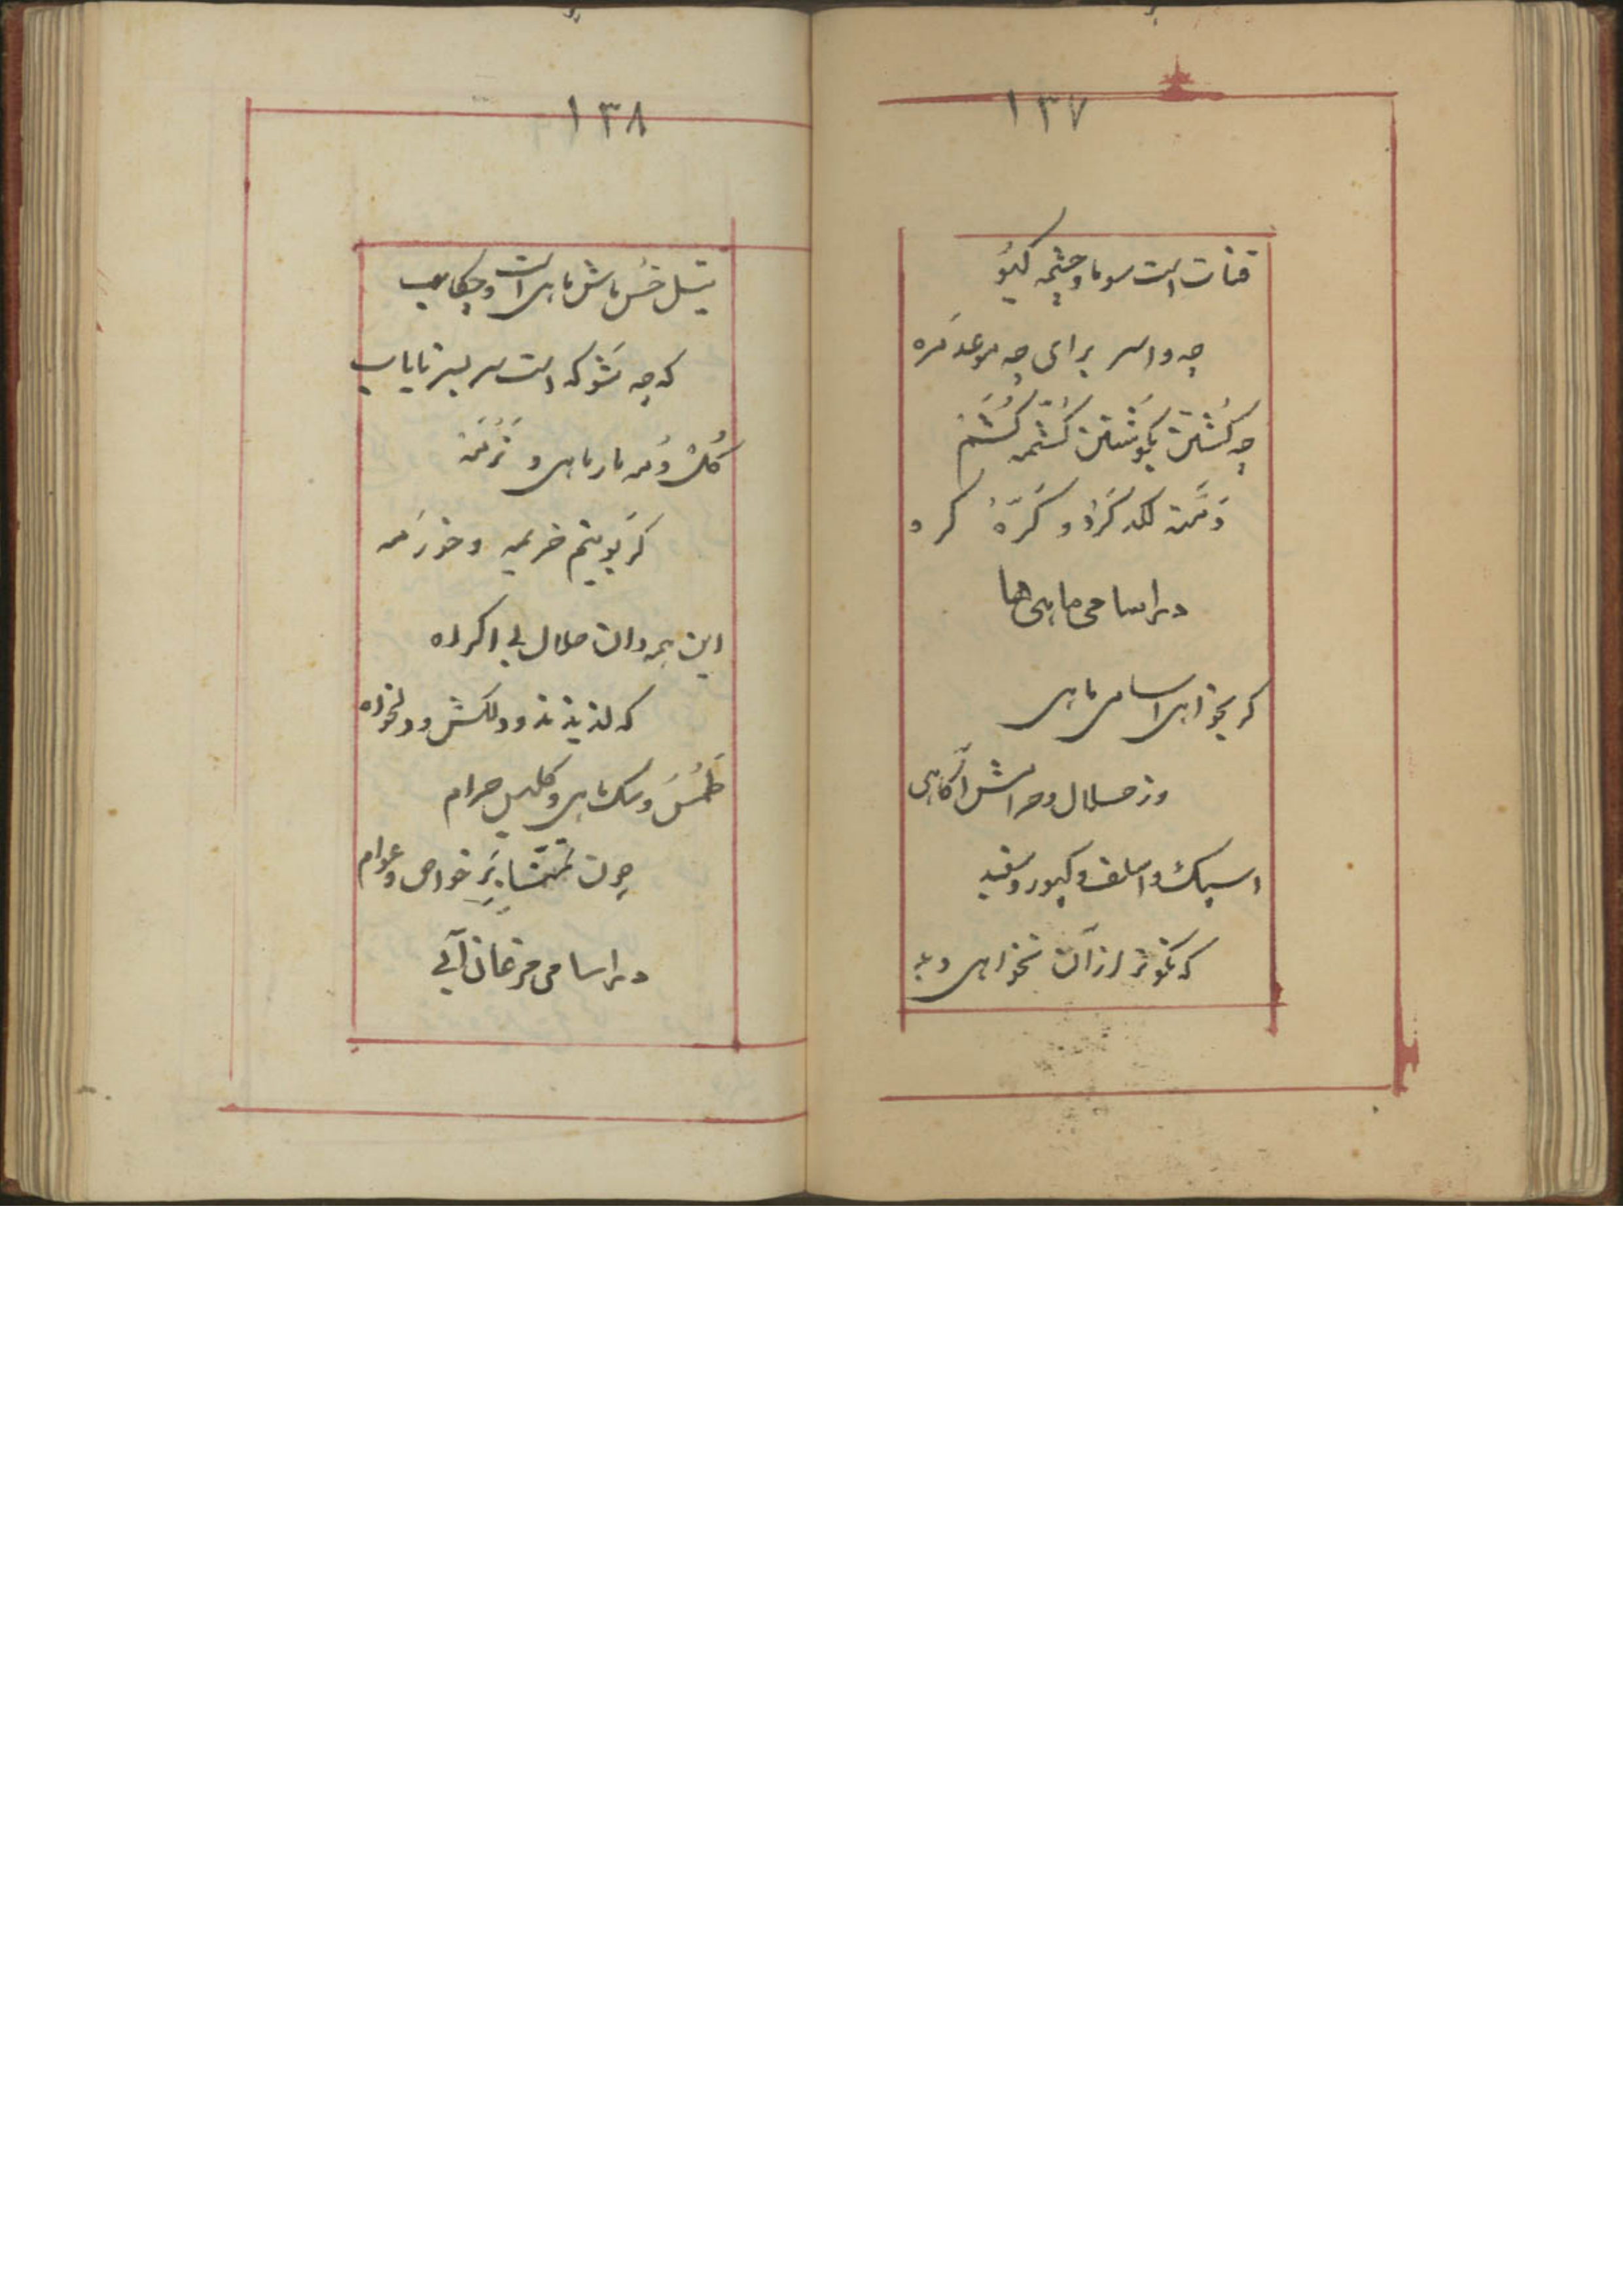 ۱۳۷
قنات است سوما و چشمه کیو
چه واسر برای چه موعد مره
چه کشتن بکوشتن کشتمه کشتم
دتمته لکد کرد و کره کرد
در اسامی ماهی‌ها
کر بخواهی اسامی ماهی
وز حلال و حرامش آکاهی
اسبک و اسلف و کپور و سفید
که نکوتر از آن نخواهی دید
۱۳۸
تیل خس ماش ماهی است و چکاب
که چه شوکه است سر بسر نایاب
کلک مار ماهی و
کر بویتم خریمه و خورمه
این همه دان حلال بی اکراه
که لذیذند و دلکش و دلخواه
طمس و سک ماهی و کلیس حرام
چون بر خواص و عوام
در اسامی مرغان آبی